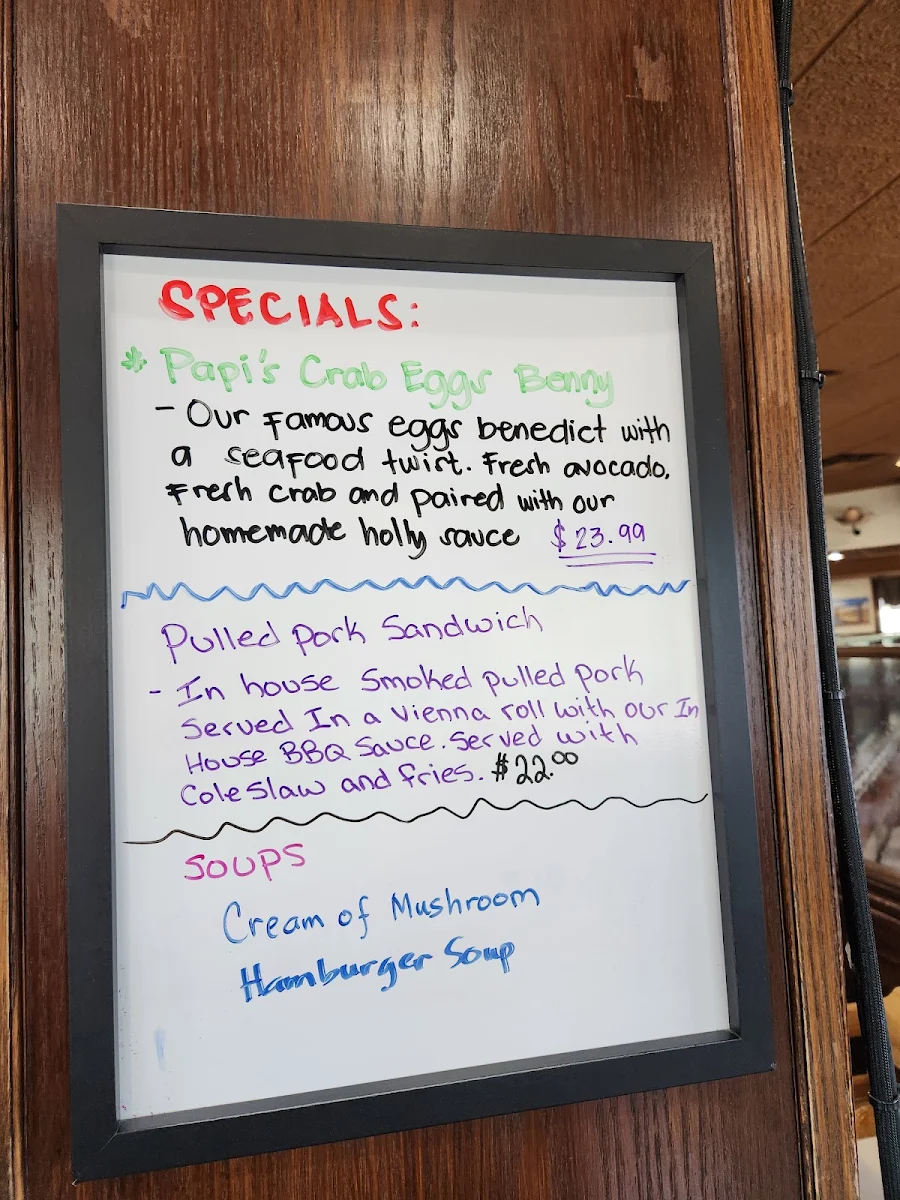 SPECIALS:
* Papi's Crab Eggs Benny
- Our Famous eggs benedict with
a seafood twist. Fresh avocado,
Fresh crab and paired with our
homemade holly sauce $23.99
Pulled Pork Sandwich
- In house Smoked pulled pork
Served In a Vienna roll with our In
House BBQ Sauce. Served with
Coleslaw and fries. $22.00
SOUPS
Cream of Mushroom
Hamburger Soup